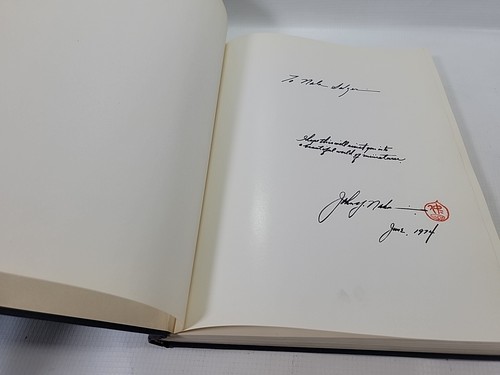 To
Hope this will invite you into
a beautiful world of miniatures.
John Y. Naka
June, 1974